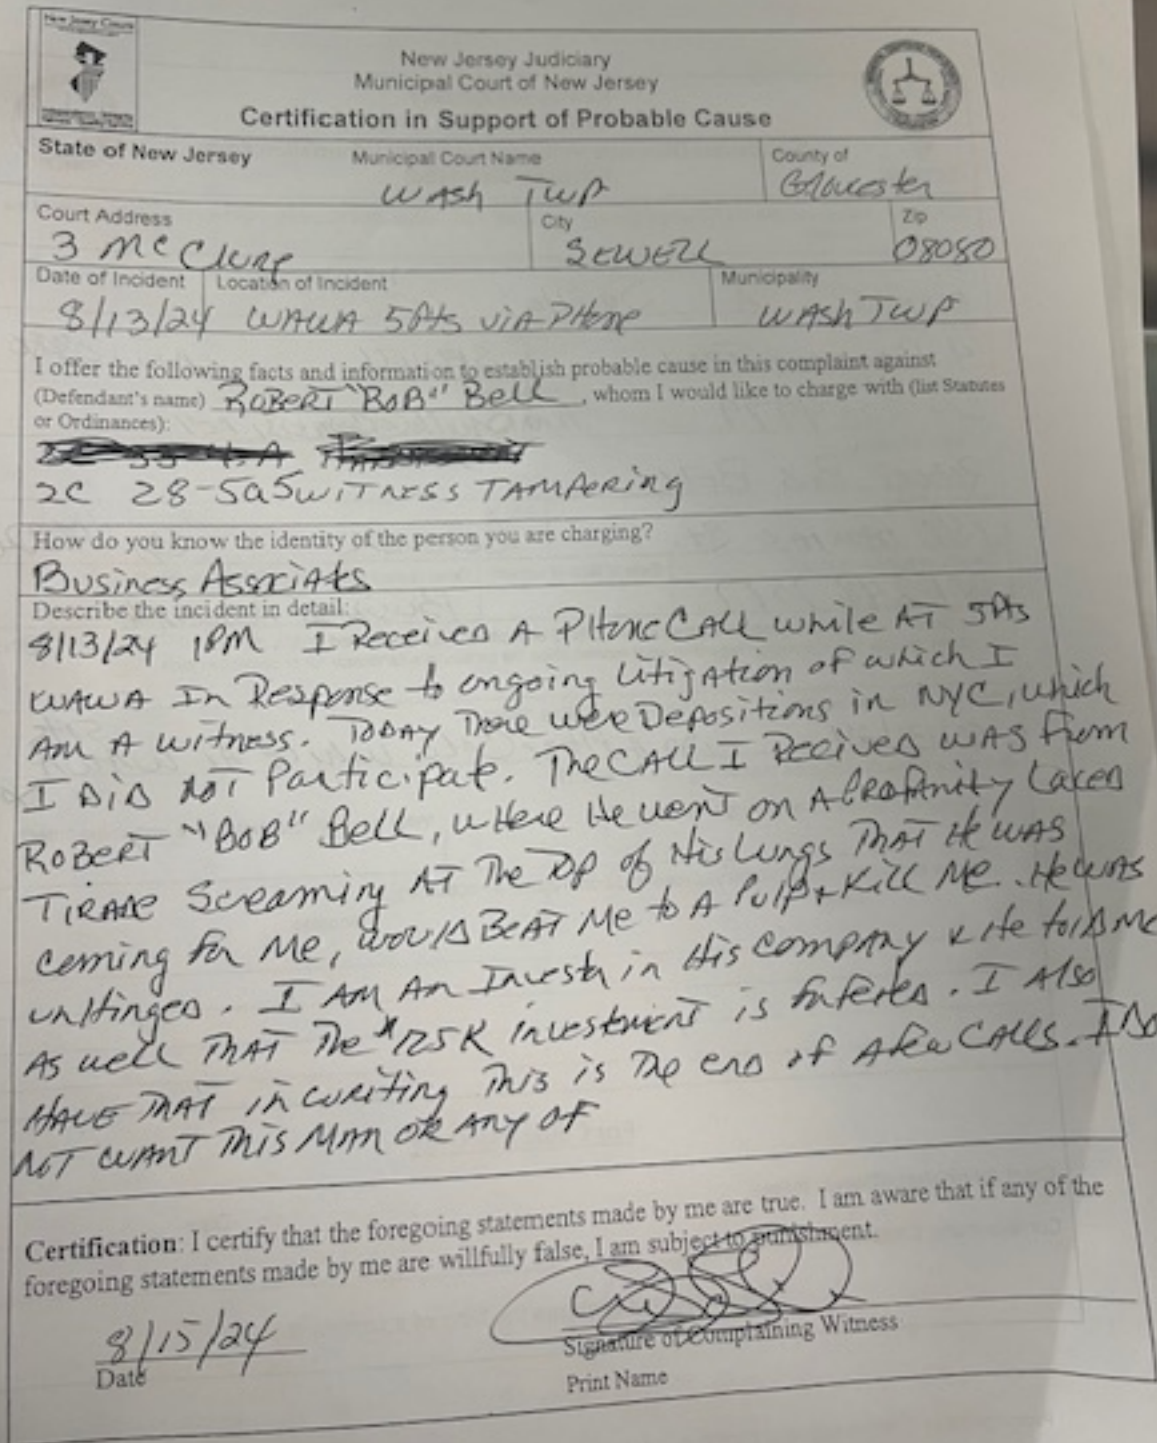 New Jersey Courts
New Jersey Judiciary
Municipal Court of New Jersey
Certification in Support of Probable Cause
State of New Jersey
Municipal Court Name
WASH TWP
County of
Gloucester
Court Address
3 McClure
City
SEWELL
Zip
08080
Date of Incident
8/13/24
Location of Incident
WAWA 5Pts viA PHone
Municipality
WASH TWP
I offer the following facts and information to establish probable cause in this complaint against
(Defendant's name) ROBERT "BOB" Bell , whom I would like to charge with (list Statutes
or Ordinances):
2C 28-5a5 WITNESS TAMPERing
How do you know the identity of the person you are charging?
Business Associates
Describe the incident in detail:
8/13/24 1PM I Received A PHone CALL while AT 5Pts
WAWA In Response to ongoing Litigation of which I
AM A witness. TODAY There were Depositions in NYC, which
I DiD NOT Participate. The CALL I Received WAS from
ROBERT "BOB" Bell, where He went on A Profanity Laced
TIRADE Screaming AT The TOP of His Lungs THAT He WAS
coming for Me, would BEAT Me to A Pulp + Kill Me. He WAS
unHinged. I AM An Investor in His company & He told Me
AS well THAT The $125K investment is forfeited. I Also
HAVE THAT in writing This is The end of A few CALLS. I DO
NOT WANT THis MAN OR ANY OF
Certification: I certify that the foregoing statements made by me are true. I am aware that if any of the
foregoing statements made by me are willfully false, I am subject to punishment.
8/15/24
Date
Signature of Complaining Witness
Print Name